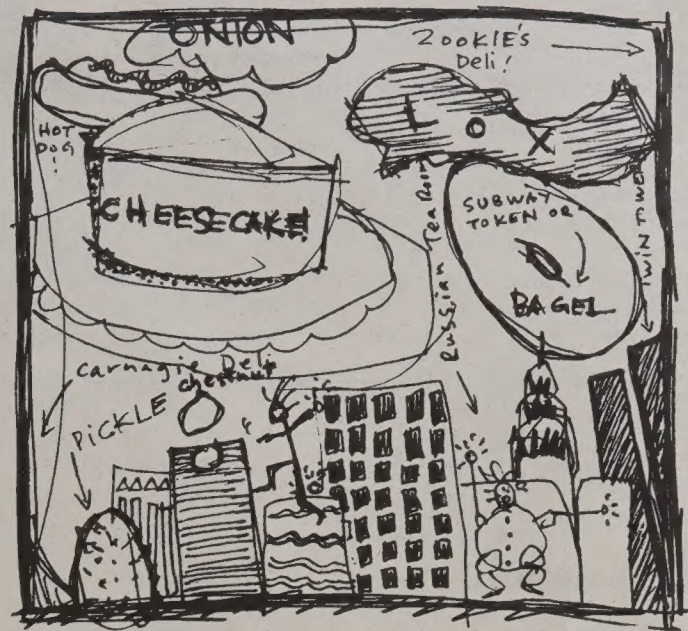 ONION
ZOOKIE'S
Deli!
HOT
DOG
!
LOX
CHEESECAKE!
SUBWAY
TOKEN OR
BAGEL
Russian Tea Room
TWIN TOWERS
Carnagie Deli
chestnut
PICKLE